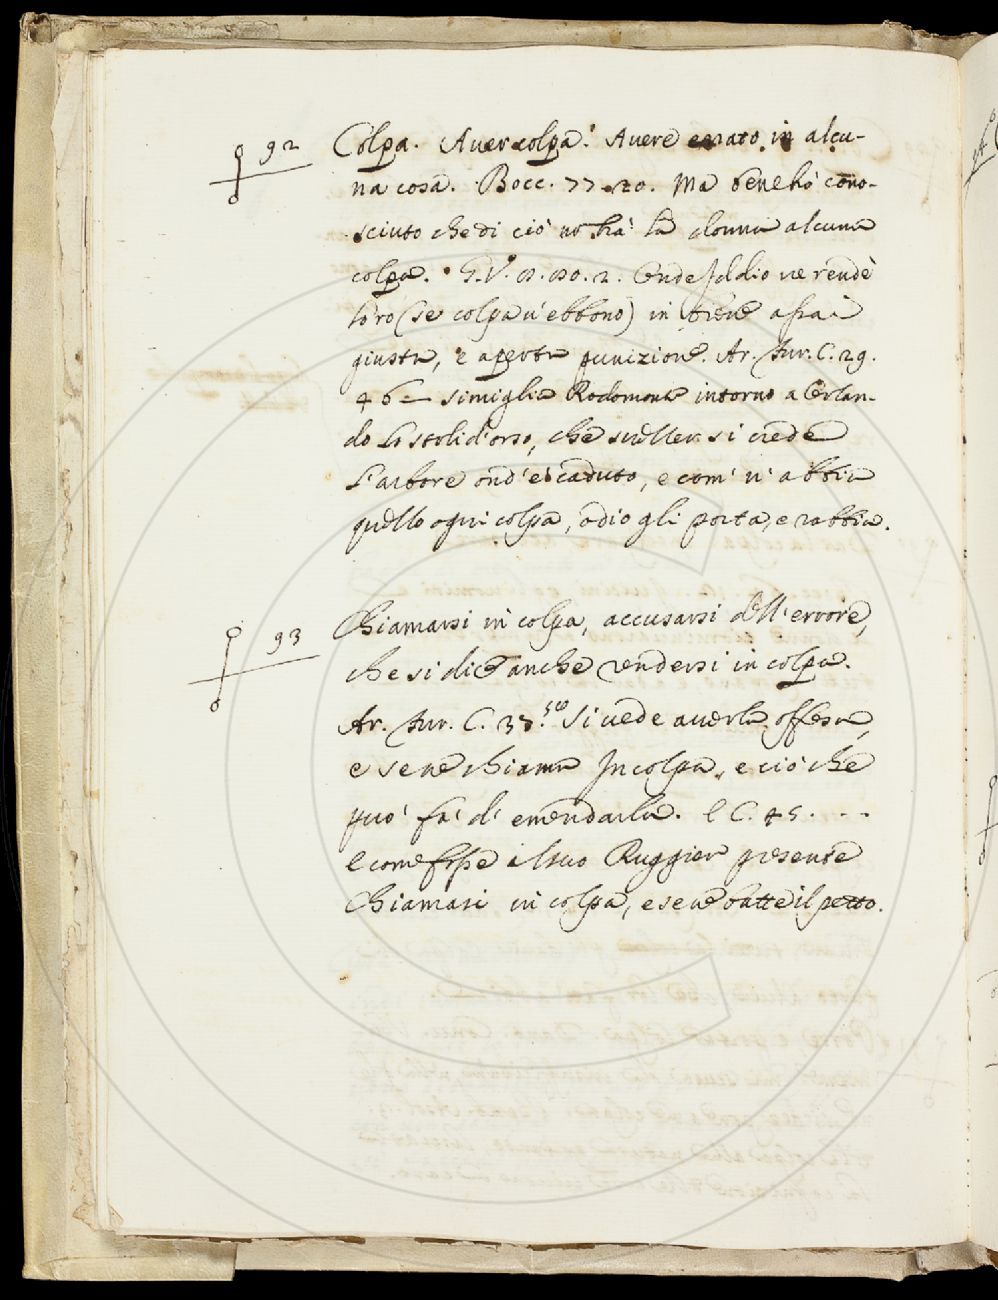 92 Colpa. Aver colpa. Avere errato in alcu-
na cosa. Bocc. 77. 20. Ma bene hó cono-
sciuto che di ció nõ há la donna alcuna
colpa. G. V. 2. Onde Iddio ne rendè
loro (se colpa n'ebbono) in brevé assai
giusta, e aperta punizione. Ar. Fur. C. 29.
46 — simiglia Rodomonte intorno a Orlan-
do Lo stolid'orso, che sveller si crede
L'arbore ond'è caduto, e com' n'abbia
quello ogni colpa, odio gli porta, e rabbia.
93 Chiamarsi in colpa, accusarsi dell'errore,
che si dice anche rendersi in colpa.
Ar. Fur. C. Si vede averla offesa,
e se ne chiama In colpa, e ció che
puó fá di emendarla. E C. 45. - - -
E come fosse il suo Ruggier presente
Chiamasi in colpa, e se ne batte il petto.